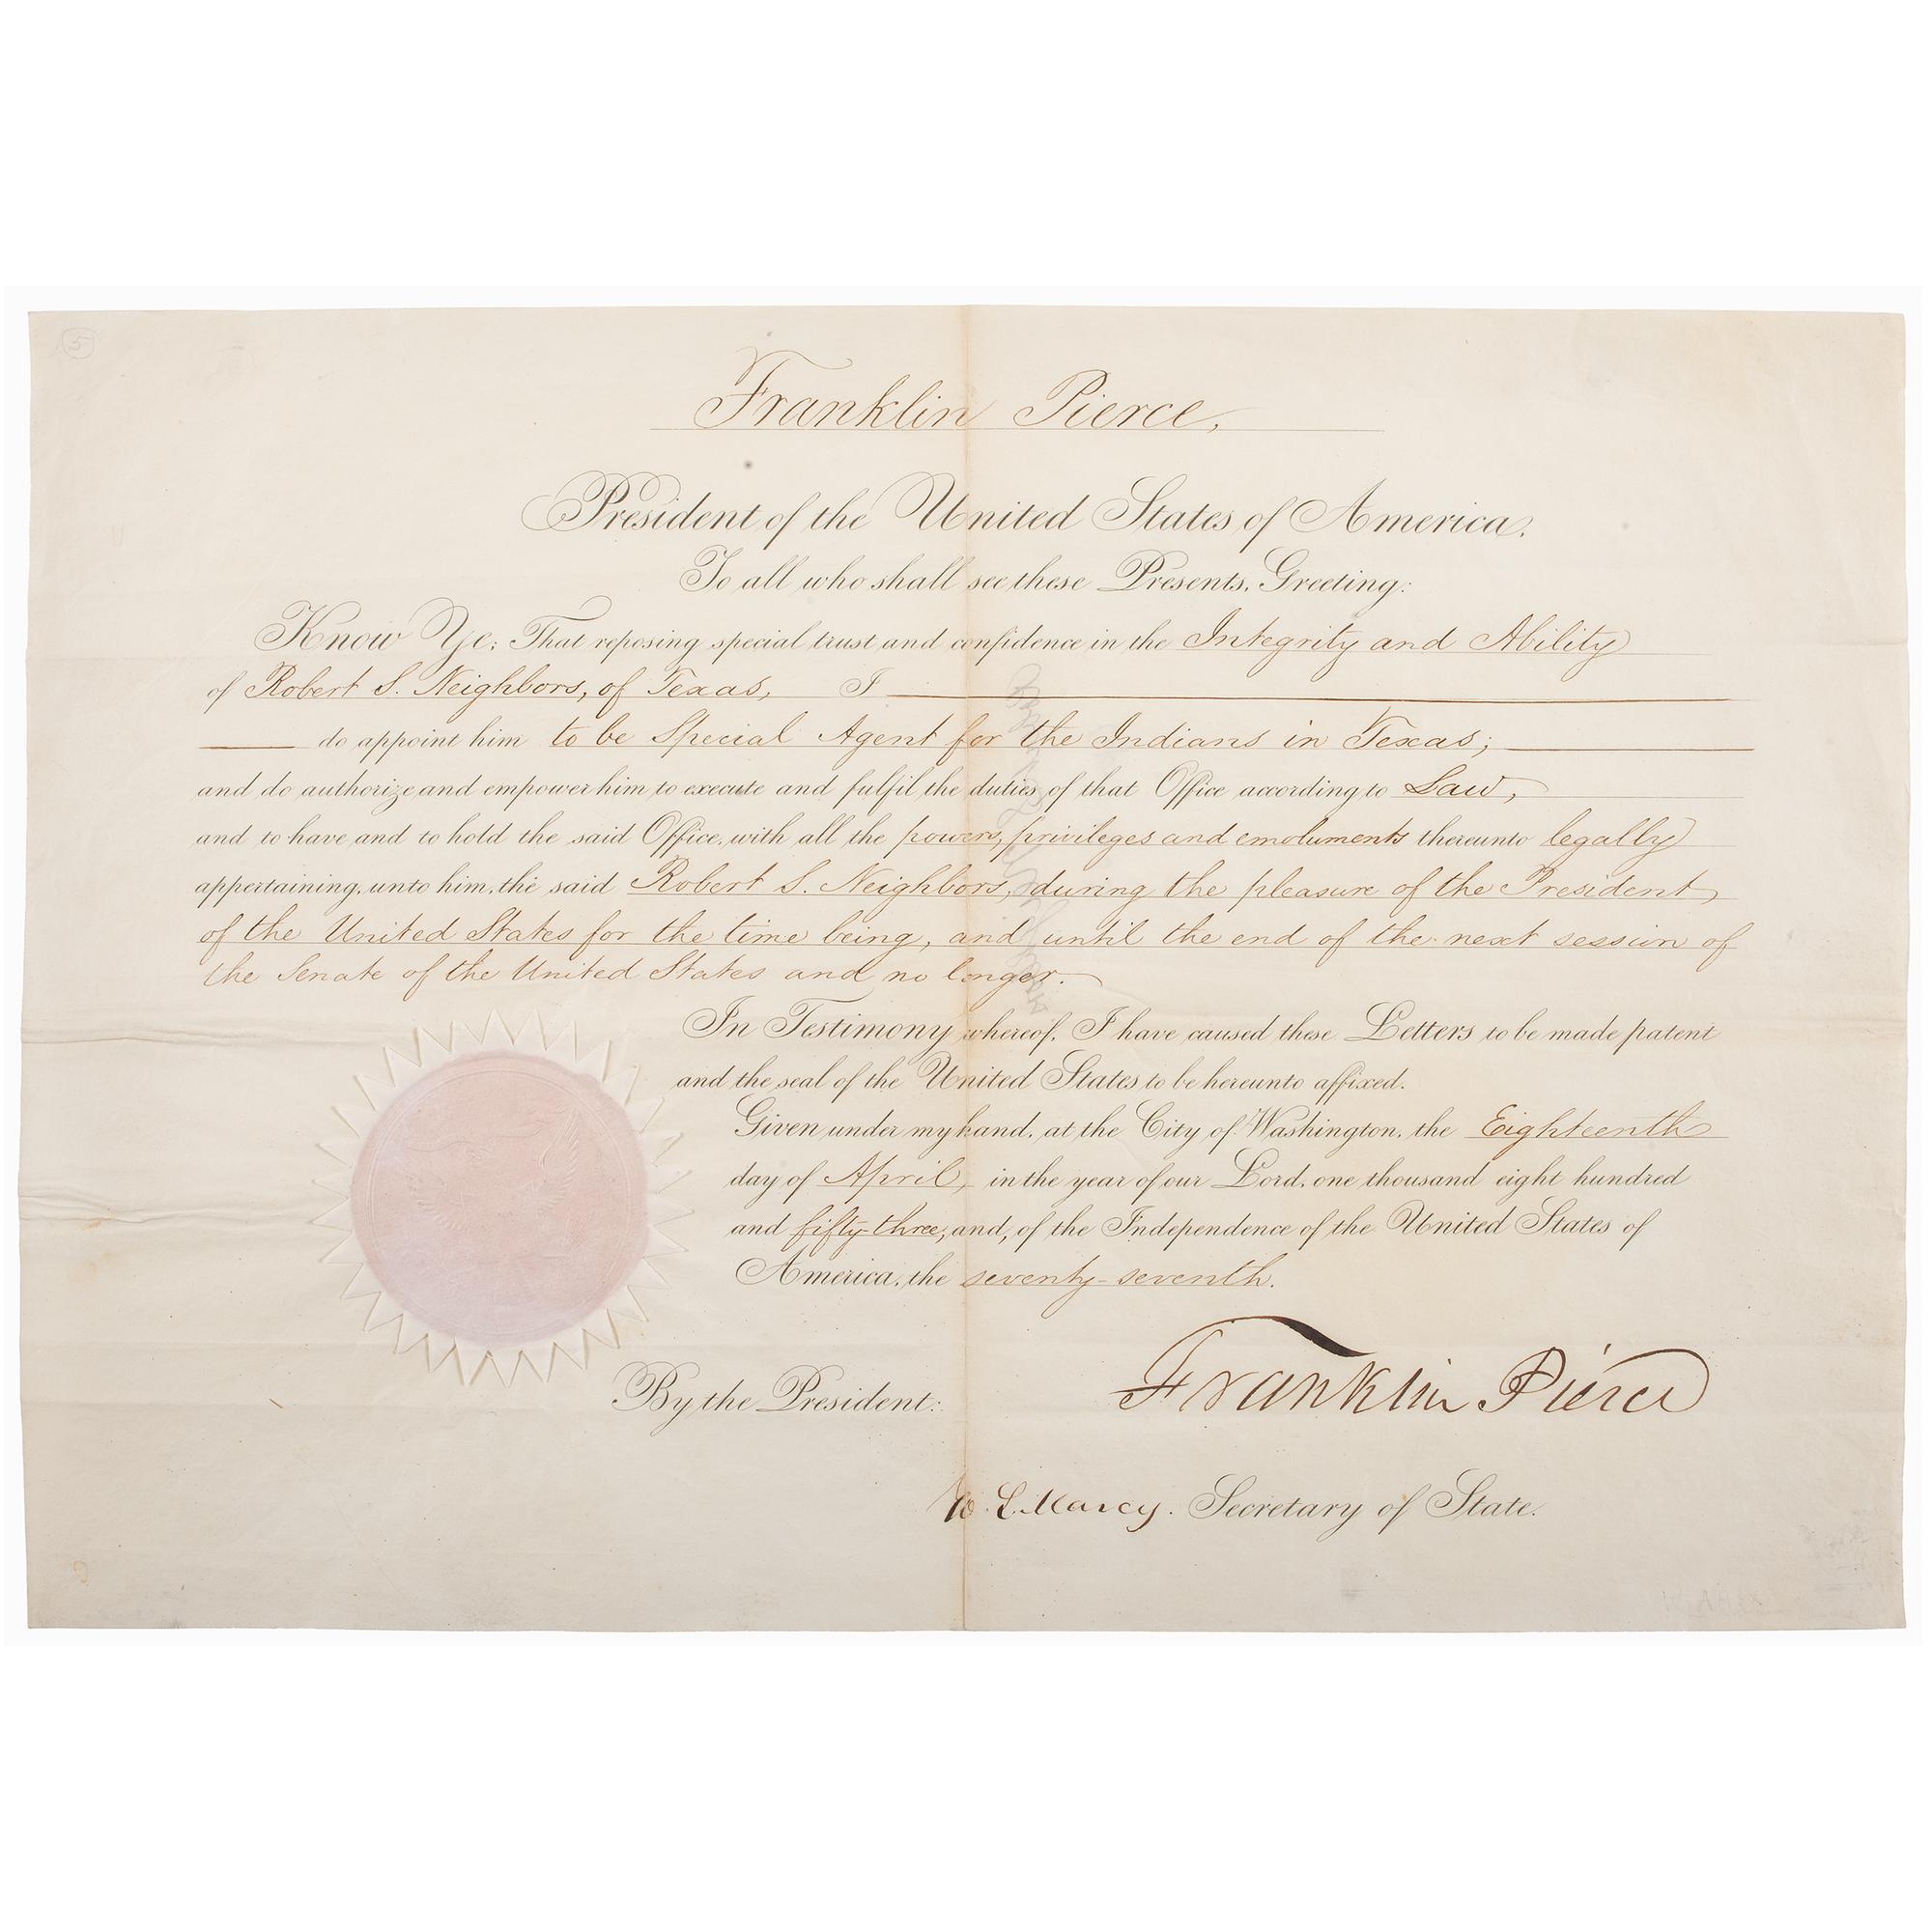 5
Franklin Pierce,
President of the United States of America.
To all who shall see these Presents, Greeting:
Know Ye; That reposing special trust and confidence in the Integrity and Ability
of Robert S. Neighbors, of Texas, I
do appoint him to be Special Agent for the Indians in Texas;
and do authorize and empower him to execute and fulfil the duties of that Office according to Law,
and to have and to hold the said Office, with all the powers, privileges and emoluments thereunto legally
appertaining, unto him, the said Robert S. Neighbors, during the pleasure of the President
of the United States for the time being, and until the end of the next session of
the Senate of the United States and no longer.
In Testimony whereof, I have caused these Letters to be made patent
and the seal of the United States to be hereunto affixed.
Given under my hand, at the City of Washington, the Eighteenth
day of April, in the year of our Lord, one thousand eight hundred
and fifty-three, and, of the Independence of the United States of
America, the seventy-seventh.
Franklin Pierce
By the President:
W. L. Marcy. Secretary of State.